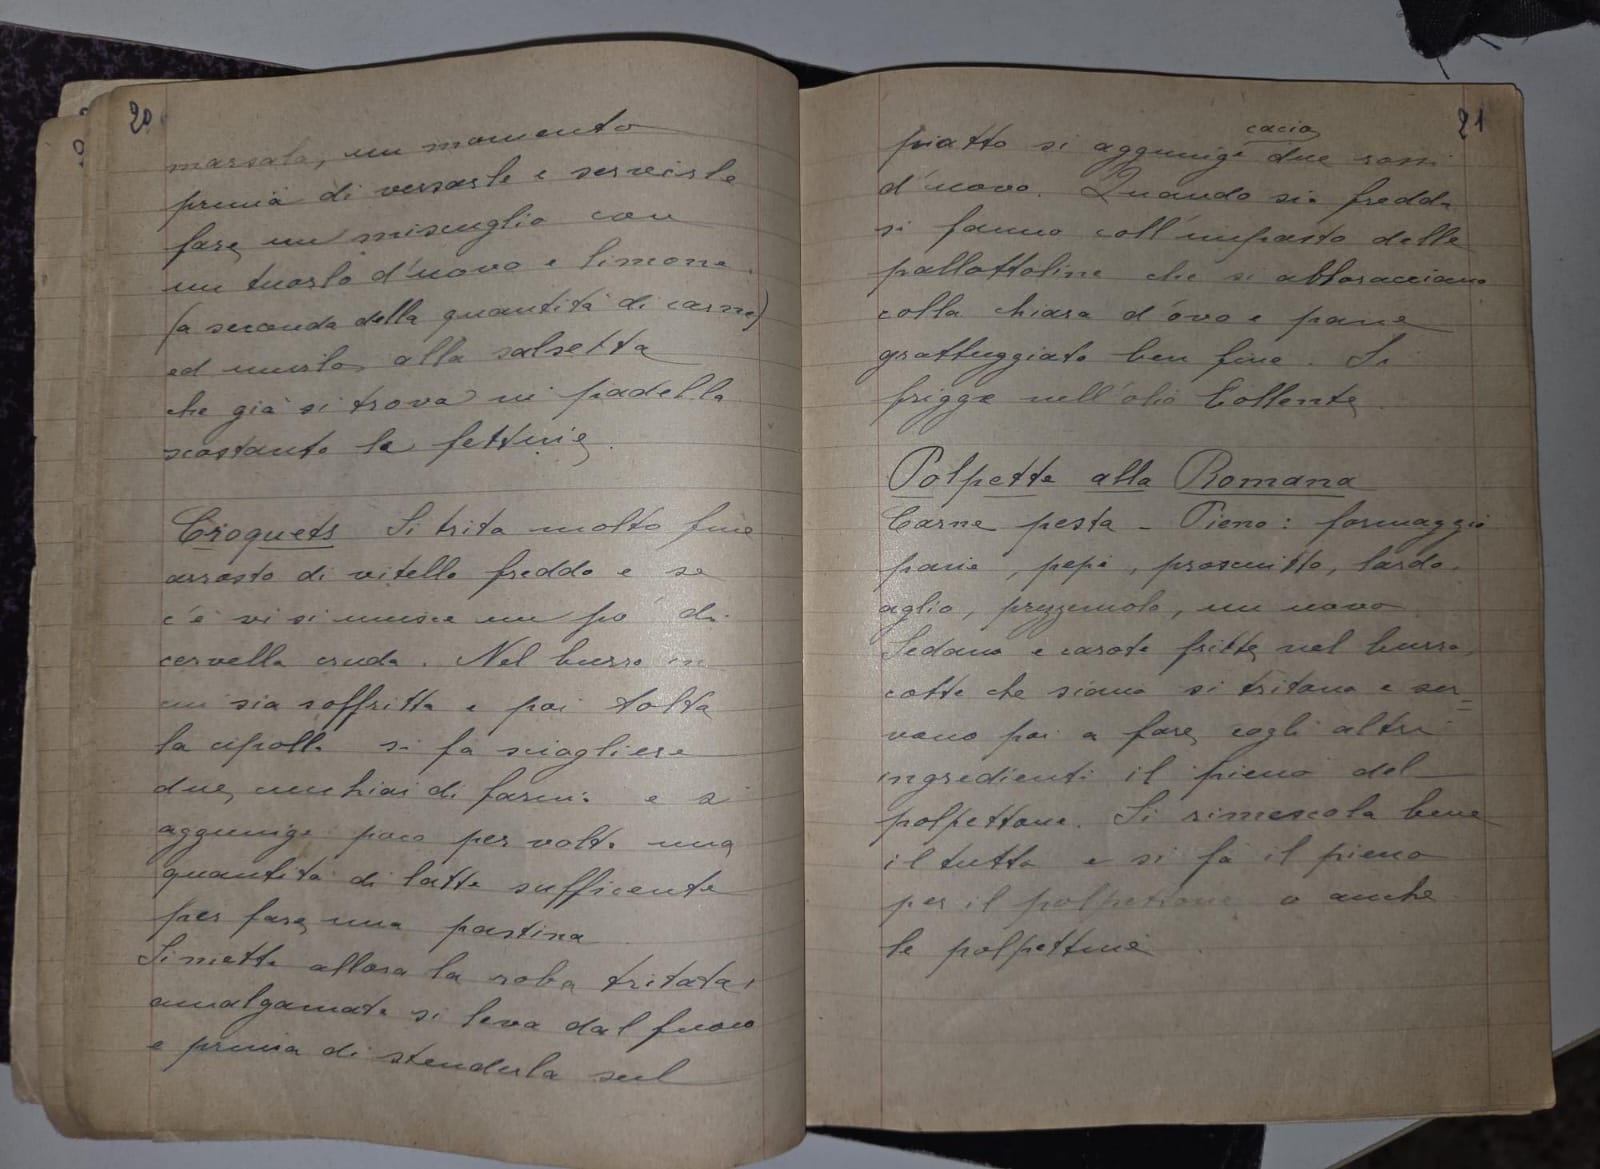 20
marsala, un momento
prima di versarle e servirle
fare un miscuglio con
un tuorlo d'uovo e limone
(a seconda della quantità di carne)
ed unirlo alla salsetta
che già si trova in padella
scostando le fettine.
Croquets Si trita molto fine
arrosto di vitello freddo e se
c'è vi si unisce un po' di
cervella cruda. Nel burro in
cui sia soffritta e poi tolta
la cipolla si fa sciogliere
due cucchiai di farina e si
aggiunge poco per volta una
quantità di latte sufficente
per fare una pastina
Si mette allora la roba tritata,
amalgamata si leva dal fuoco
e prima di stenderla sul
21
cacio
piatto si aggiunge due rossi
d'uovo. Quando sia fredda
si fanno coll'impasto delle
pallottoline che si abbracciano
colla chiara d'ovo e pane
grattuggiato ben fine. Si
frigge nell'olio bollente
Polpette alla Romana
Carne pesta - Pieno: formaggio
pane, pepe, prosciutto, lardo,
aglio, prezzemolo, un uovo
Sedano e carote fritte nel burro,
cotte che siano si tritano e ser=
vono poi a fare cogli altri
ingredienti il pieno del
polpettone. Si rimescola bene
il tutto e si fa il pieno
per il polpettone o anche
le polpettine